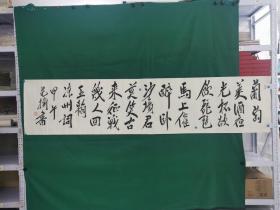 葡萄
美酒夜
光杯欲
飲琵琶
馬上催
醉卧
沙場君
莫笑古
来征戰
幾人回
王翰
凉州詞
甲午
書